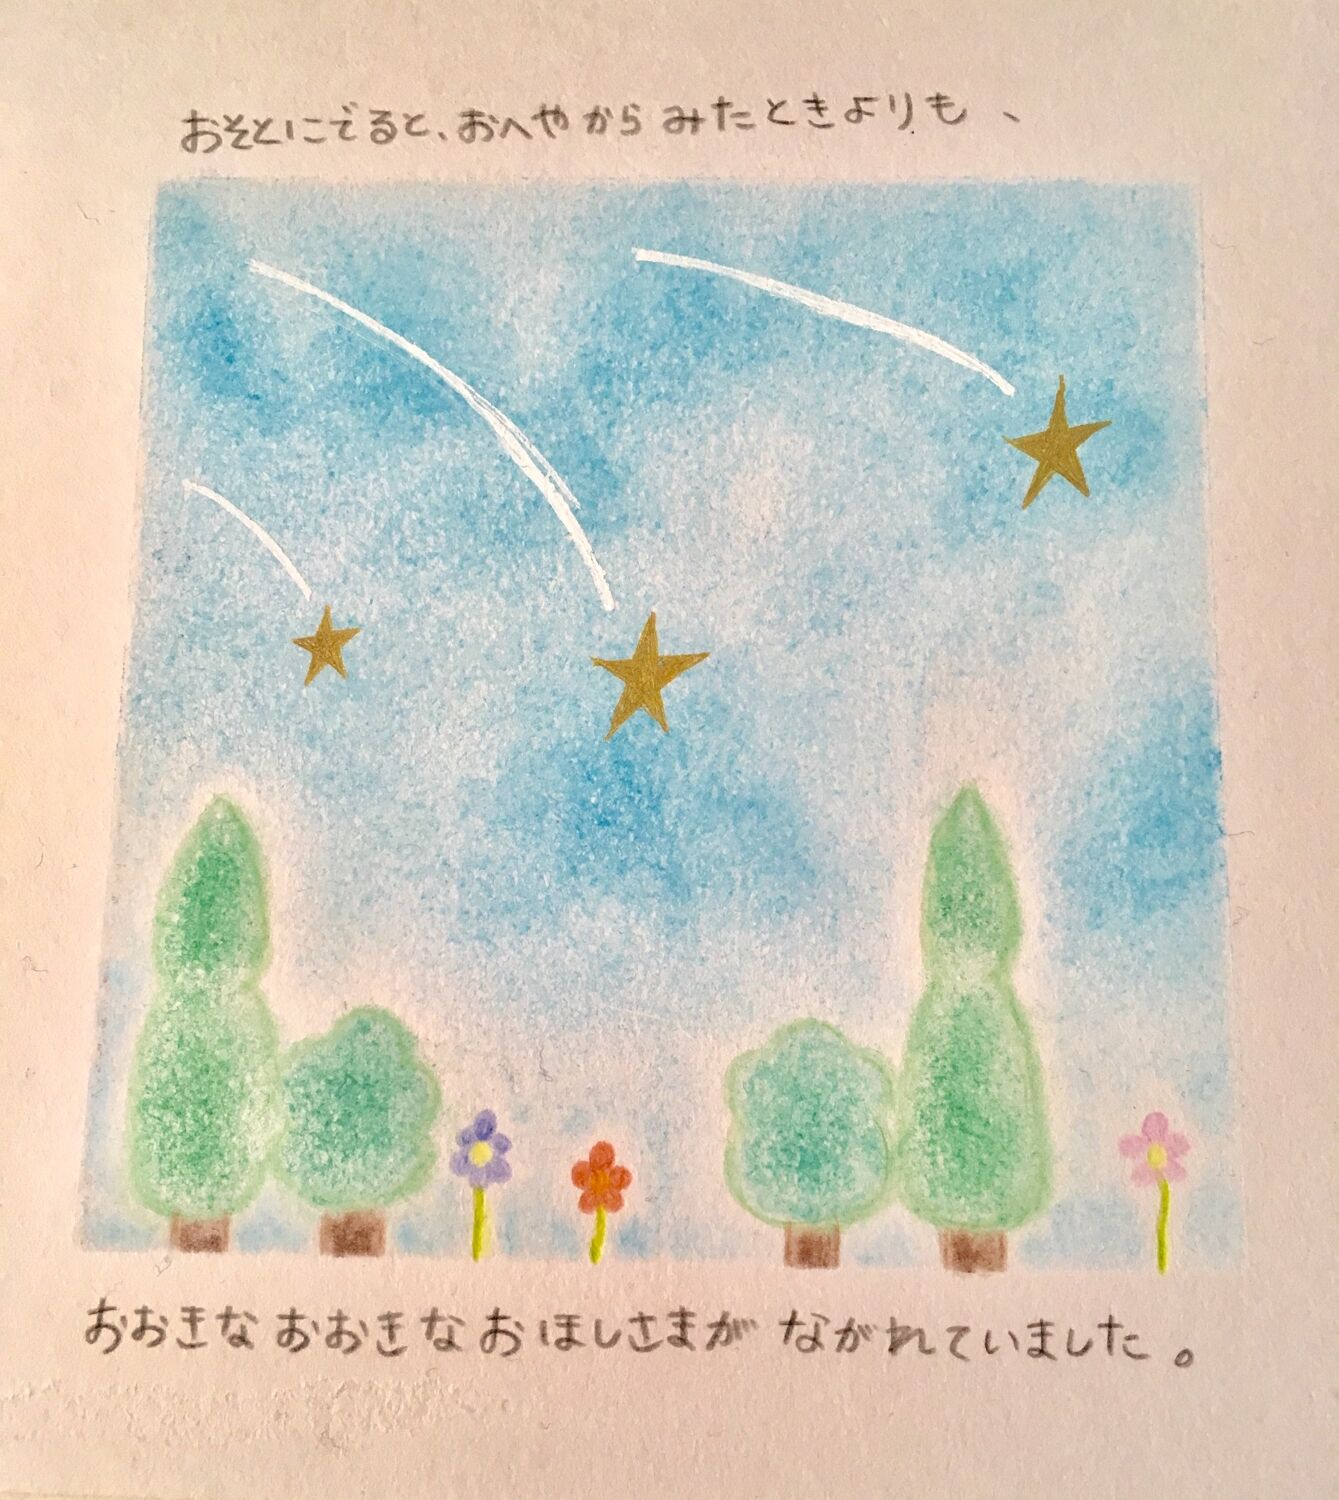 おそとにでると、おへやからみたときよりも、
おおきなおおきなおほしさまがながれていました。